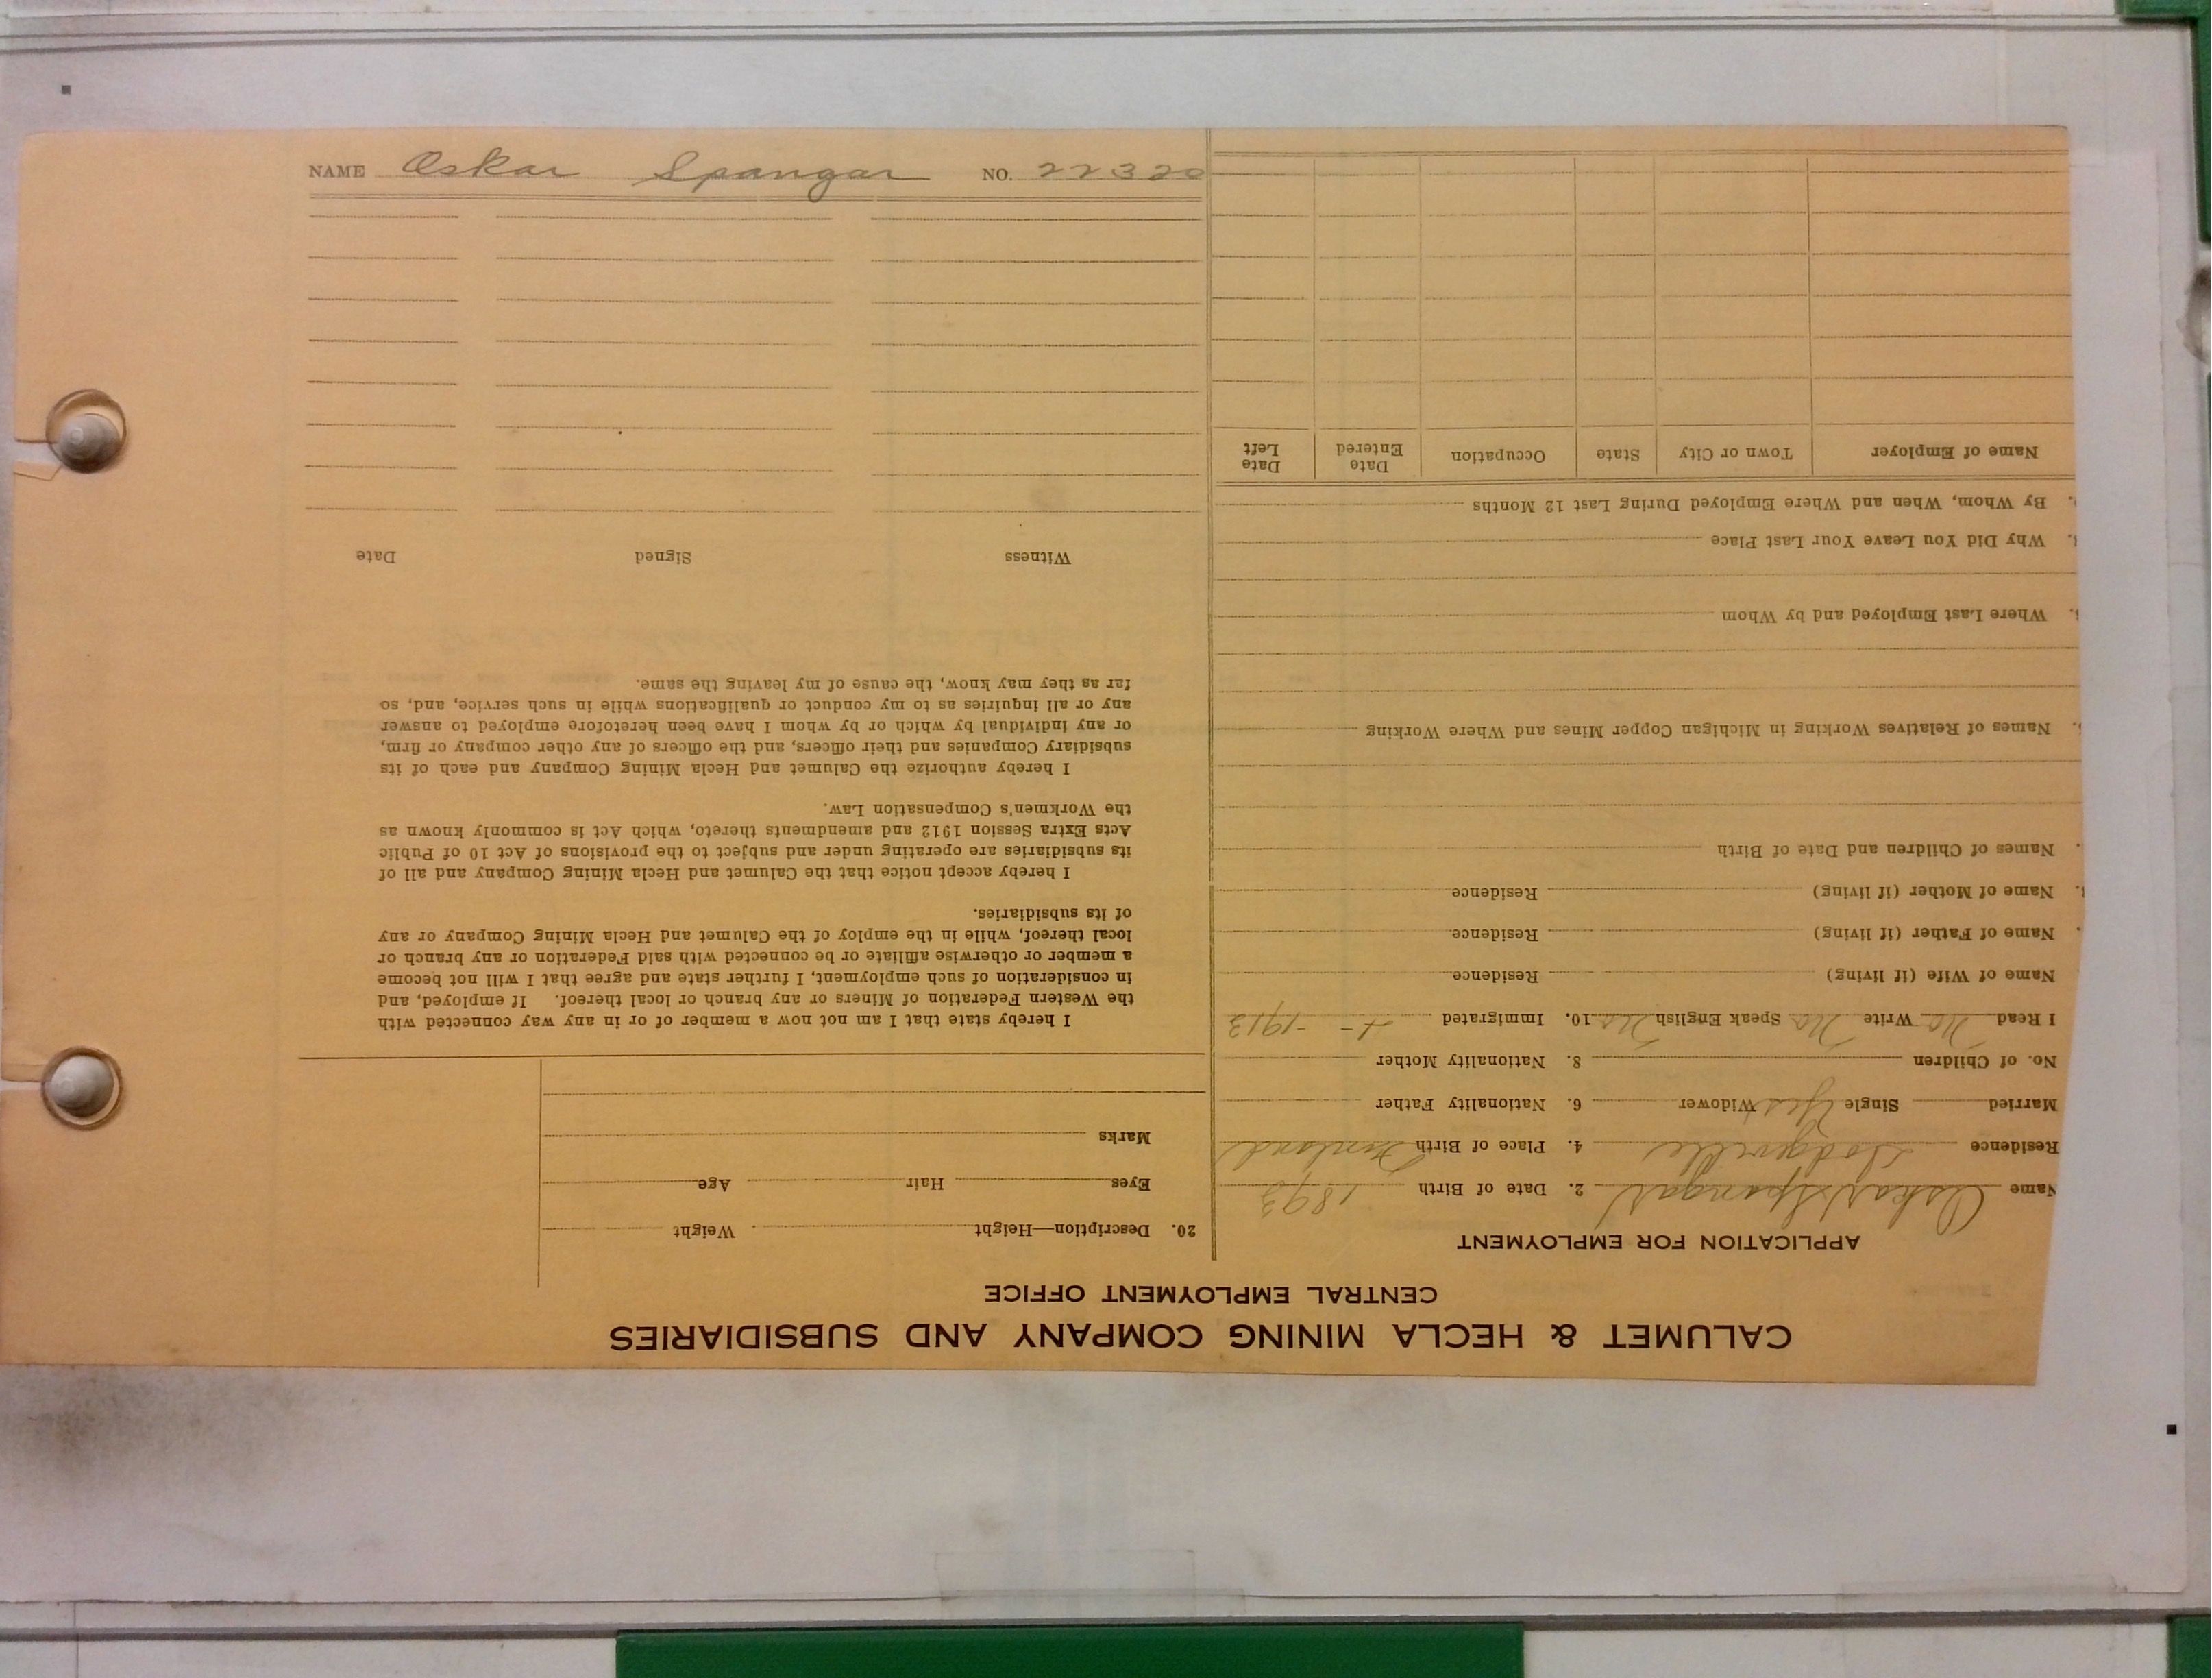 NAME Oskar Spangar NO. 22320
CALUMET & HECLA MINING COMPANY AND SUBSIDIARIES
CENTRAL EMPLOYMENT OFFICE
APPLICATION FOR EMPLOYMENT
Name Oskar Spangar 2. Date of Birth 1893
Residence Dodgeville 4. Place of Birth Finland
Married Single Yes Widower 6. Nationality Father
No. of Children 8. Nationality Mother
I Read No Write No Speak English No 10. Immigrated - 1913
Name of Wife (if living) Residence
Name of Father (if living) Residence
Name of Mother (if living) Residence
Names of Children and Date of Birth
Names of Relatives Working in Michigan Copper Mines and Where Working
Where Last Employed and by Whom
Why Did You Leave Your Last Place
By Whom, When and Where Employed During Last 12 Months
Name of Employer Town or City State Occupation Date Entered Date Left
20. Description—Height Weight
Eyes Hair Age
Marks
I hereby state that I am not now a member of or in any way connected with
the Western Federation of Miners or any branch or local thereof. If employed, and
in consideration of such employment, I further state and agree that I will not become
a member or otherwise affiliate or be connected with said Federation or any branch or
local thereof, while in the employ of the Calumet and Hecla Mining Company or any
of its subsidiaries.
I hereby accept notice that the Calumet and Hecla Mining Company and all of
its subsidiaries are operating under and subject to the provisions of Act 10 of Public
Acts Extra Session 1912 and amendments thereto, which Act is commonly known as
the Workmen's Compensation Law.
I hereby authorize the Calumet and Hecla Mining Company and each of its
subsidiary Companies and their officers, and the officers of any other company or firm,
or any individual by which or by whom I have been heretofore employed to answer
any or all inquiries as to my conduct or qualifications while in such service, and, so
far as they may know, the cause of my leaving the same.
Witness Signed Date